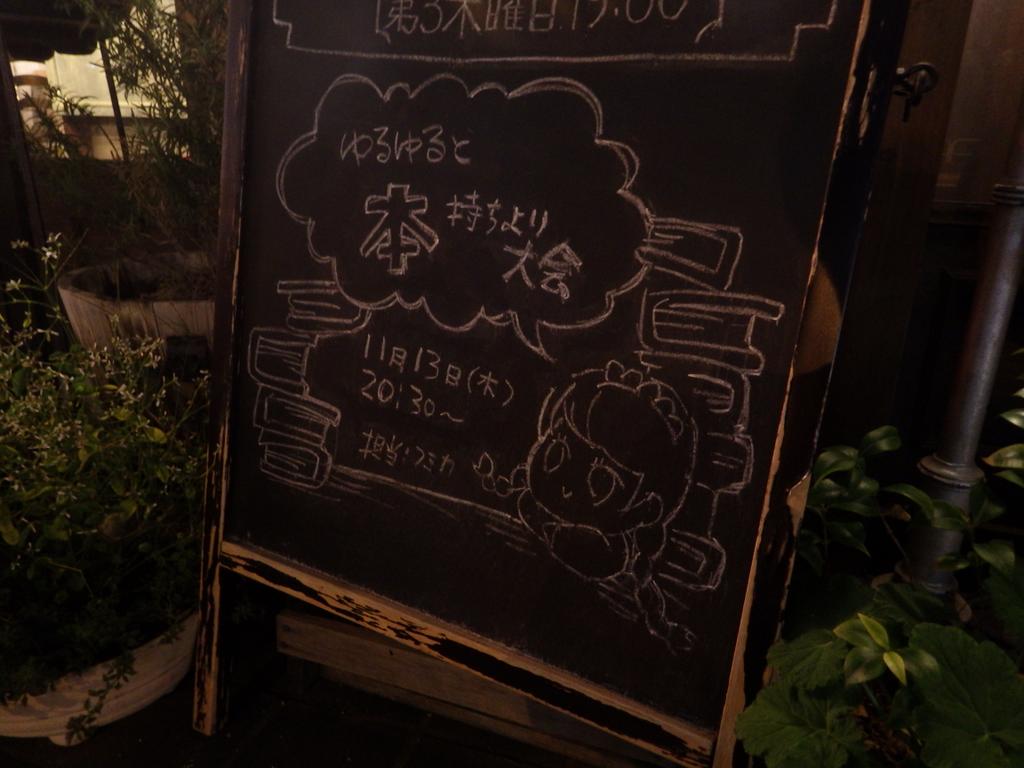 第3木曜日 19:00
ゆるゆると
本 持ちより
大会
11月13日(木)
20:30〜
担当:フミカ